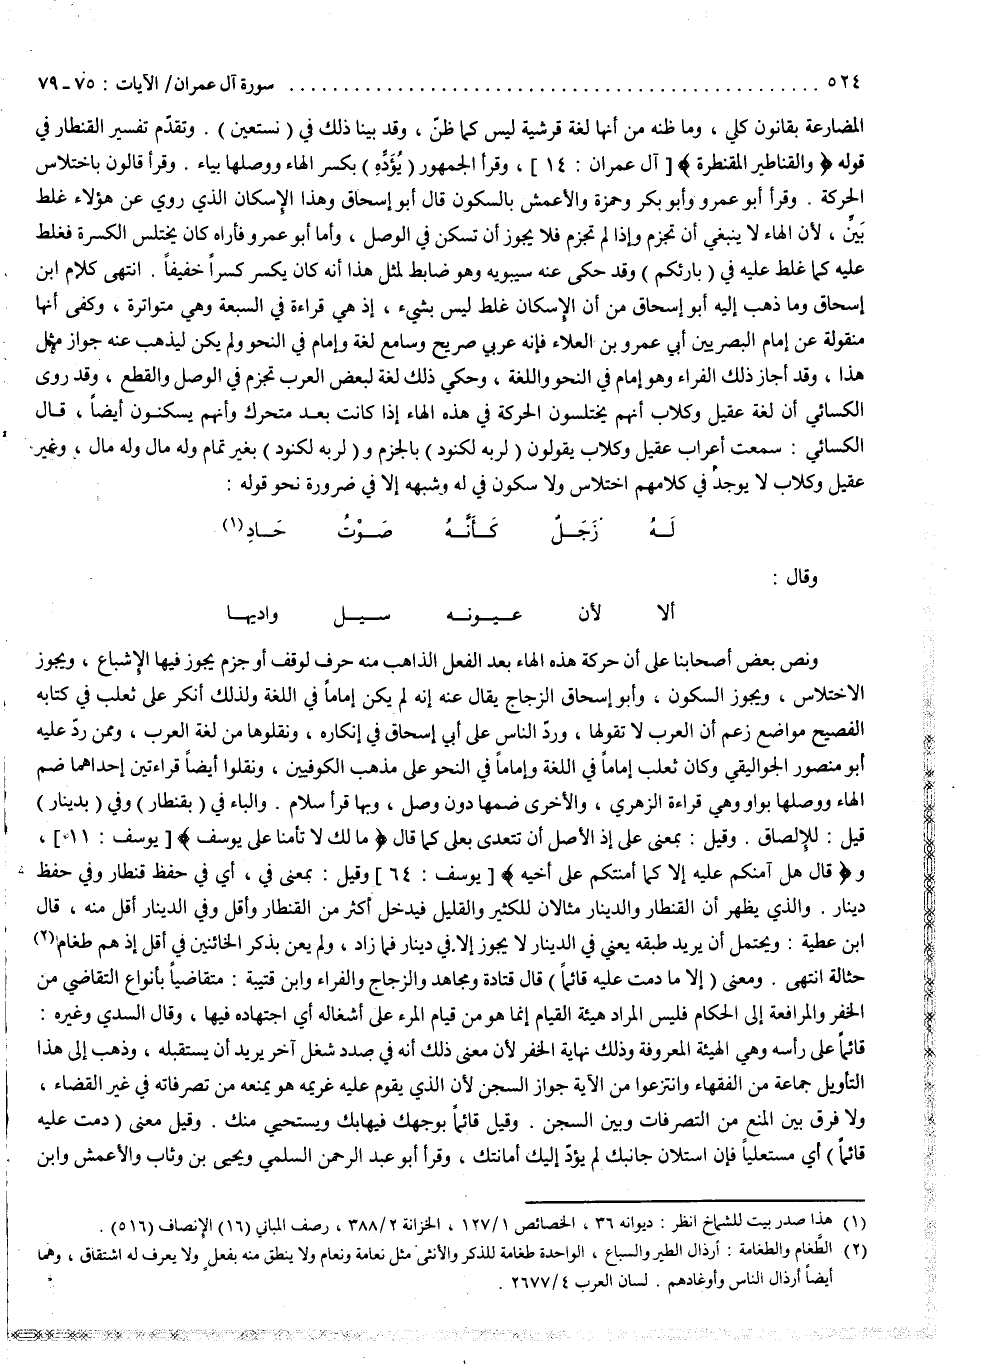 ٥٢٤ ........................................ سورة آل عمران/ الآيات : ٧٥ ـ ٧٩
المضارعة بقانون كلي ، وما ظنه من أنها لغة قرشية ليس كما ظنّ ، وقد بينا ذلك في ( نستعين ) . وتقدّم تفسير القنطار في
قوله ﴿ والقناطير المقنطرة ﴾ [ آل عمران : ١٤ ] ، وقرأ الجمهور ( يُؤَدِّهِ ) بكسر الهاء ووصلها بياء . وقرأ قالون باختلاس
الحركة . وقرأ أبو عمرو وأبو بكر وحمزة والأعمش بالسكون قال أبو إسحاق وهذا الإسكان الذي روي عن هؤلاء غلط
بَيِّن ، لأن الهاء لا ينبغي أن تجزم وإذا لم تجزم فلا يجوز أن تسكن في الوصل ، وأما أبو عمرو فأراه كان يختلس الكسرة فغلط
عليه كما غلط عليه في ( بارئكم ) وقد حكى عنه سيبويه وهو ضابط لمثل هذا أنه كان يكسر كسراً خفيفاً . انتهى كلام ابن
إسحاق وما ذهب إليه أبو إسحاق من أن الإسكان غلط ليس بشيء ، إذ هي قراءة في السبعة وهي متواترة ، وكفى أنها
منقولة عن إمام البصريين أبي عمرو بن العلاء فإنه عربي صريح وسامع لغة وإمام في النحو ولم يكن ليذهب عنه جواز مثل
هذا ، وقد أجاز ذلك الفراء وهو إمام في النحو واللغة ، وحكي ذلك لغة لبعض العرب تجزم في الوصل والقطع ، وقد روى
الكسائي أن لغة عقيل وكلاب أنهم يختلسون الحركة في هذه الهاء إذا كانت بعد متحرك وأنهم يسكنون أيضاً ، قال
الكسائي : سمعت أعراب عقيل وكلاب يقولون ( لربه لكنود ) بالجزم و ( لربه لكنود ) بغير تمام وله مال وله مال ، وغير
عقيل وكلاب لا يوجد في كلامهم اختلاس ولا سكون في له وشبهه إلا في ضرورة نحو قوله :
لَهُ زَجَلٌ كَأَنَّهُ صَوْتُ حَادِ(١)
وقال :
ألا لأن عيونه سيل واديها
ونص بعض أصحابنا على أن حركة هذه الهاء بعد الفعل الذاهب منه حرف لوقف أو جزم يجوز فيها الإشباع ، ويجوز
الاختلاس ، ويجوز السكون ، وأبو إسحاق الزجاج يقال عنه إنه لم يكن إماماً في اللغة ولذلك أنكر على ثعلب في كتابه
الفصيح مواضع زعم أن العرب لا تقولها ، وردّ الناس على أبي إسحاق في إنكاره ، ونقلوها من لغة العرب ، وممن ردّ عليه
أبو منصور الجواليقي وكان ثعلب إماماً في اللغة وإماماً في النحو على مذهب الكوفيين ، ونقلوا أيضاً قراءتين إحداهما ضم
الهاء ووصلها بواو وهي قراءة الزهري ، والأخرى ضمها دون وصل ، وبها قرأ سلام . والباء في ( بقنطار ) وفي ( بدينار )
قيل : للإلصاق . وقيل : بمعنى على إذ الأصل أن تتعدى بعلى كما قال ﴿ ما لك لا تأمنا على يوسف ﴾ [ يوسف : ١١ ] ،
و ﴿ قال هل آمنكم عليه إلا كما أمنتكم على أخيه ﴾ [ يوسف : ٦٤ ] وقيل : بمعنى في ، أي في حفظ قنطار وفي حفظ
دينار . والذي يظهر أن القنطار والدينار مثالان للكثير والقليل فيدخل أكثر من القنطار وأقل وفي الدينار أقل منه ، قال
ابن عطية : ويحتمل أن يريد طبقه يعني في الدينار لا يجوز إلا في دينار فما زاد ، ولم يعن بذكر الخائنين في أقل إذ هم طغام(٢)
حثالة انتهى . ومعنى ( إلا ما دمت عليه قائماً ) قال قتادة ومجاهد والزجاج والفراء وابن قتيبة : متقاضياً بأنواع التقاضي من
الخفر والمرافعة إلى الحكام فليس المراد هيئة القيام إنما هو من قيام المرء على أشغاله أي اجتهاده فيها ، وقال السدي وغيره :
قائماً على رأسه وهي الهيئة المعروفة وذلك نهاية الخفر لأن معنى ذلك أنه في صدد شغل آخر يريد أن يستقبله ، وذهب إلى هذا
التأويل جماعة من الفقهاء وانتزعوا من الآية جواز السجن لأن الذي يقوم عليه غريمه هو يمنعه من تصرفاته في غير القضاء ،
ولا فرق بين المنع من التصرفات وبين السجن . وقيل قائماً بوجهك فيهابك ويستحيي منك . وقيل معنى ( دمت عليه
قائماً ) أي مستعلياً فإن استلان جانبك لم يؤدّ إليك أمانتك ، وقرأ أبو عبد الرحمن السلمي ويحيى بن وثاب والأعمش وابن
(١) هذا صدر بيت للشماخ انظر : ديوانه ٣٦ ، الخصائص ١٢٧/١ ، الخزانة ٣٨٨/٢ ، رصف المباني (١٦) الإنصاف (٥١٦) .
(٢) الطَّغام والطغامة : أرذال الطير والسباع ، الواحدة طغامة للذكر والأنثى مثل نعامة ونعام ولا ينطق منه بفعل ولا يعرف له اشتقاق ، وهما
أيضاً أرذال الناس وأوغادهم . لسان العرب ٢٦٧٧/٤ .